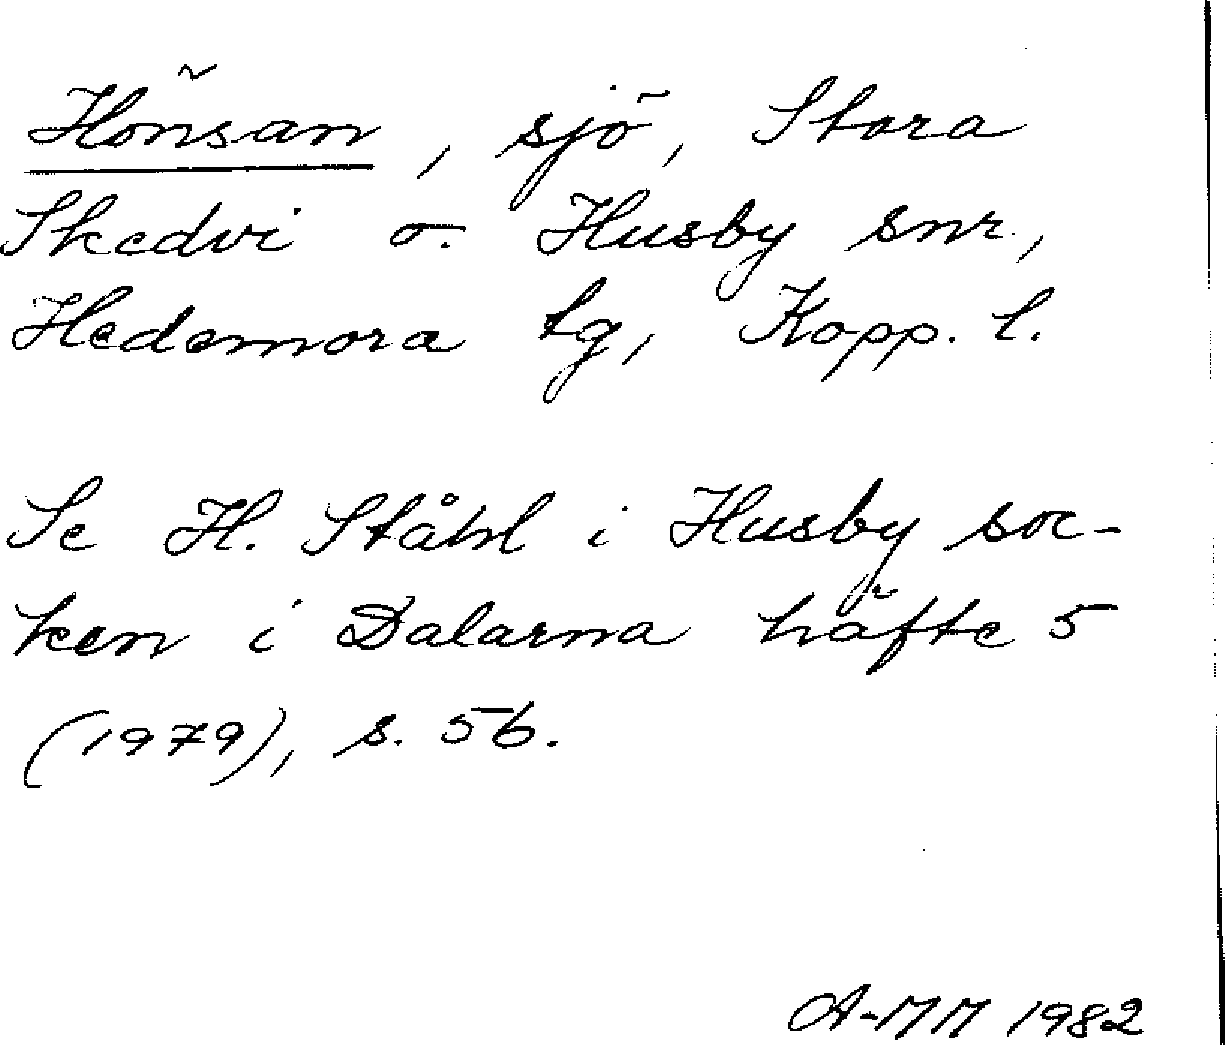 Hönsan, sjö, Stora
Skedvi o. Husby snr.,
Hedemora tg, Kopp. l.
Se H. Ståhl i Husby soc-
ken i Dalarna häfte 5
(1979), s. 56.
A-MM 1982